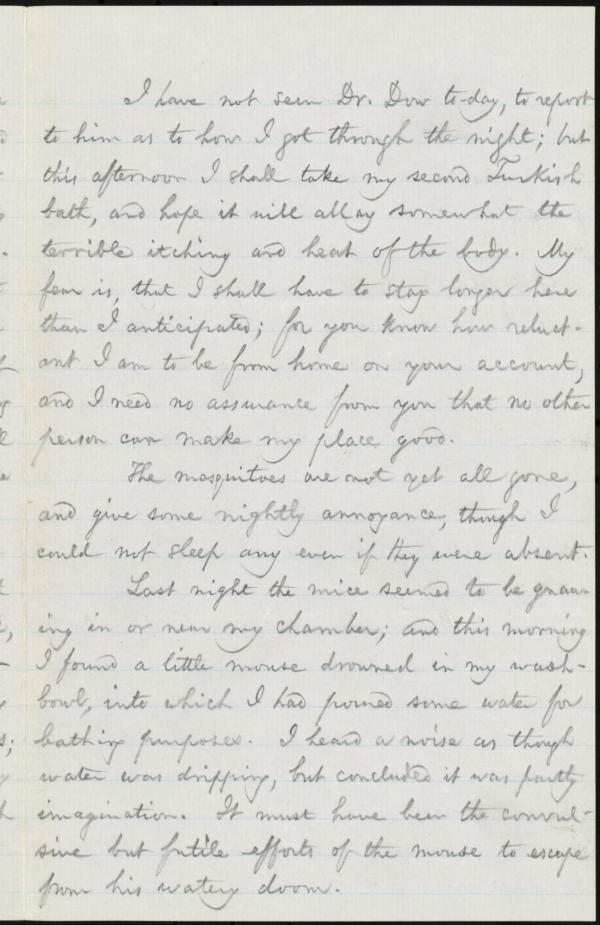 I have not seen Dr. Dow to-day, to report
to him as to how I got through the night; but
this afternoon I shall take my second Turkish
bath, and hope it will allay somewhat the
terrible itching and heat of the body. My
fear is, that I shall have to stay longer here
than I anticipated; for you know how reluct-
ant I am to be from home on your account,
and I need no assurance from you that no other
person can make my place good.
The mosquitoes are not yet all gone,
and give some nightly annoyance, though I
could not sleep any even if they were absent.
Last night the mice seemed to be gnaw-
ing in or near my chamber; and this morning
I found a little mouse drowned in my wash-
bowl, into which I had poured some water for
bathing purposes. I heard a noise as though
water was dripping, but concluded it was partly
imagination. It must have been the convul-
sive but futile efforts of the mouse to escape
from his watery doom.